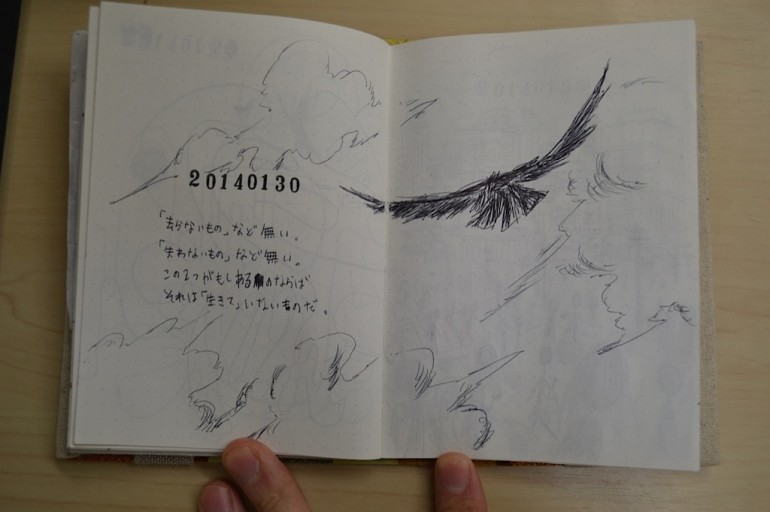 20140130
「去らないもの」など無い。
「失わないもの」など無い。
この2つがもしあるのならば
それは「生きて」いないものだ。